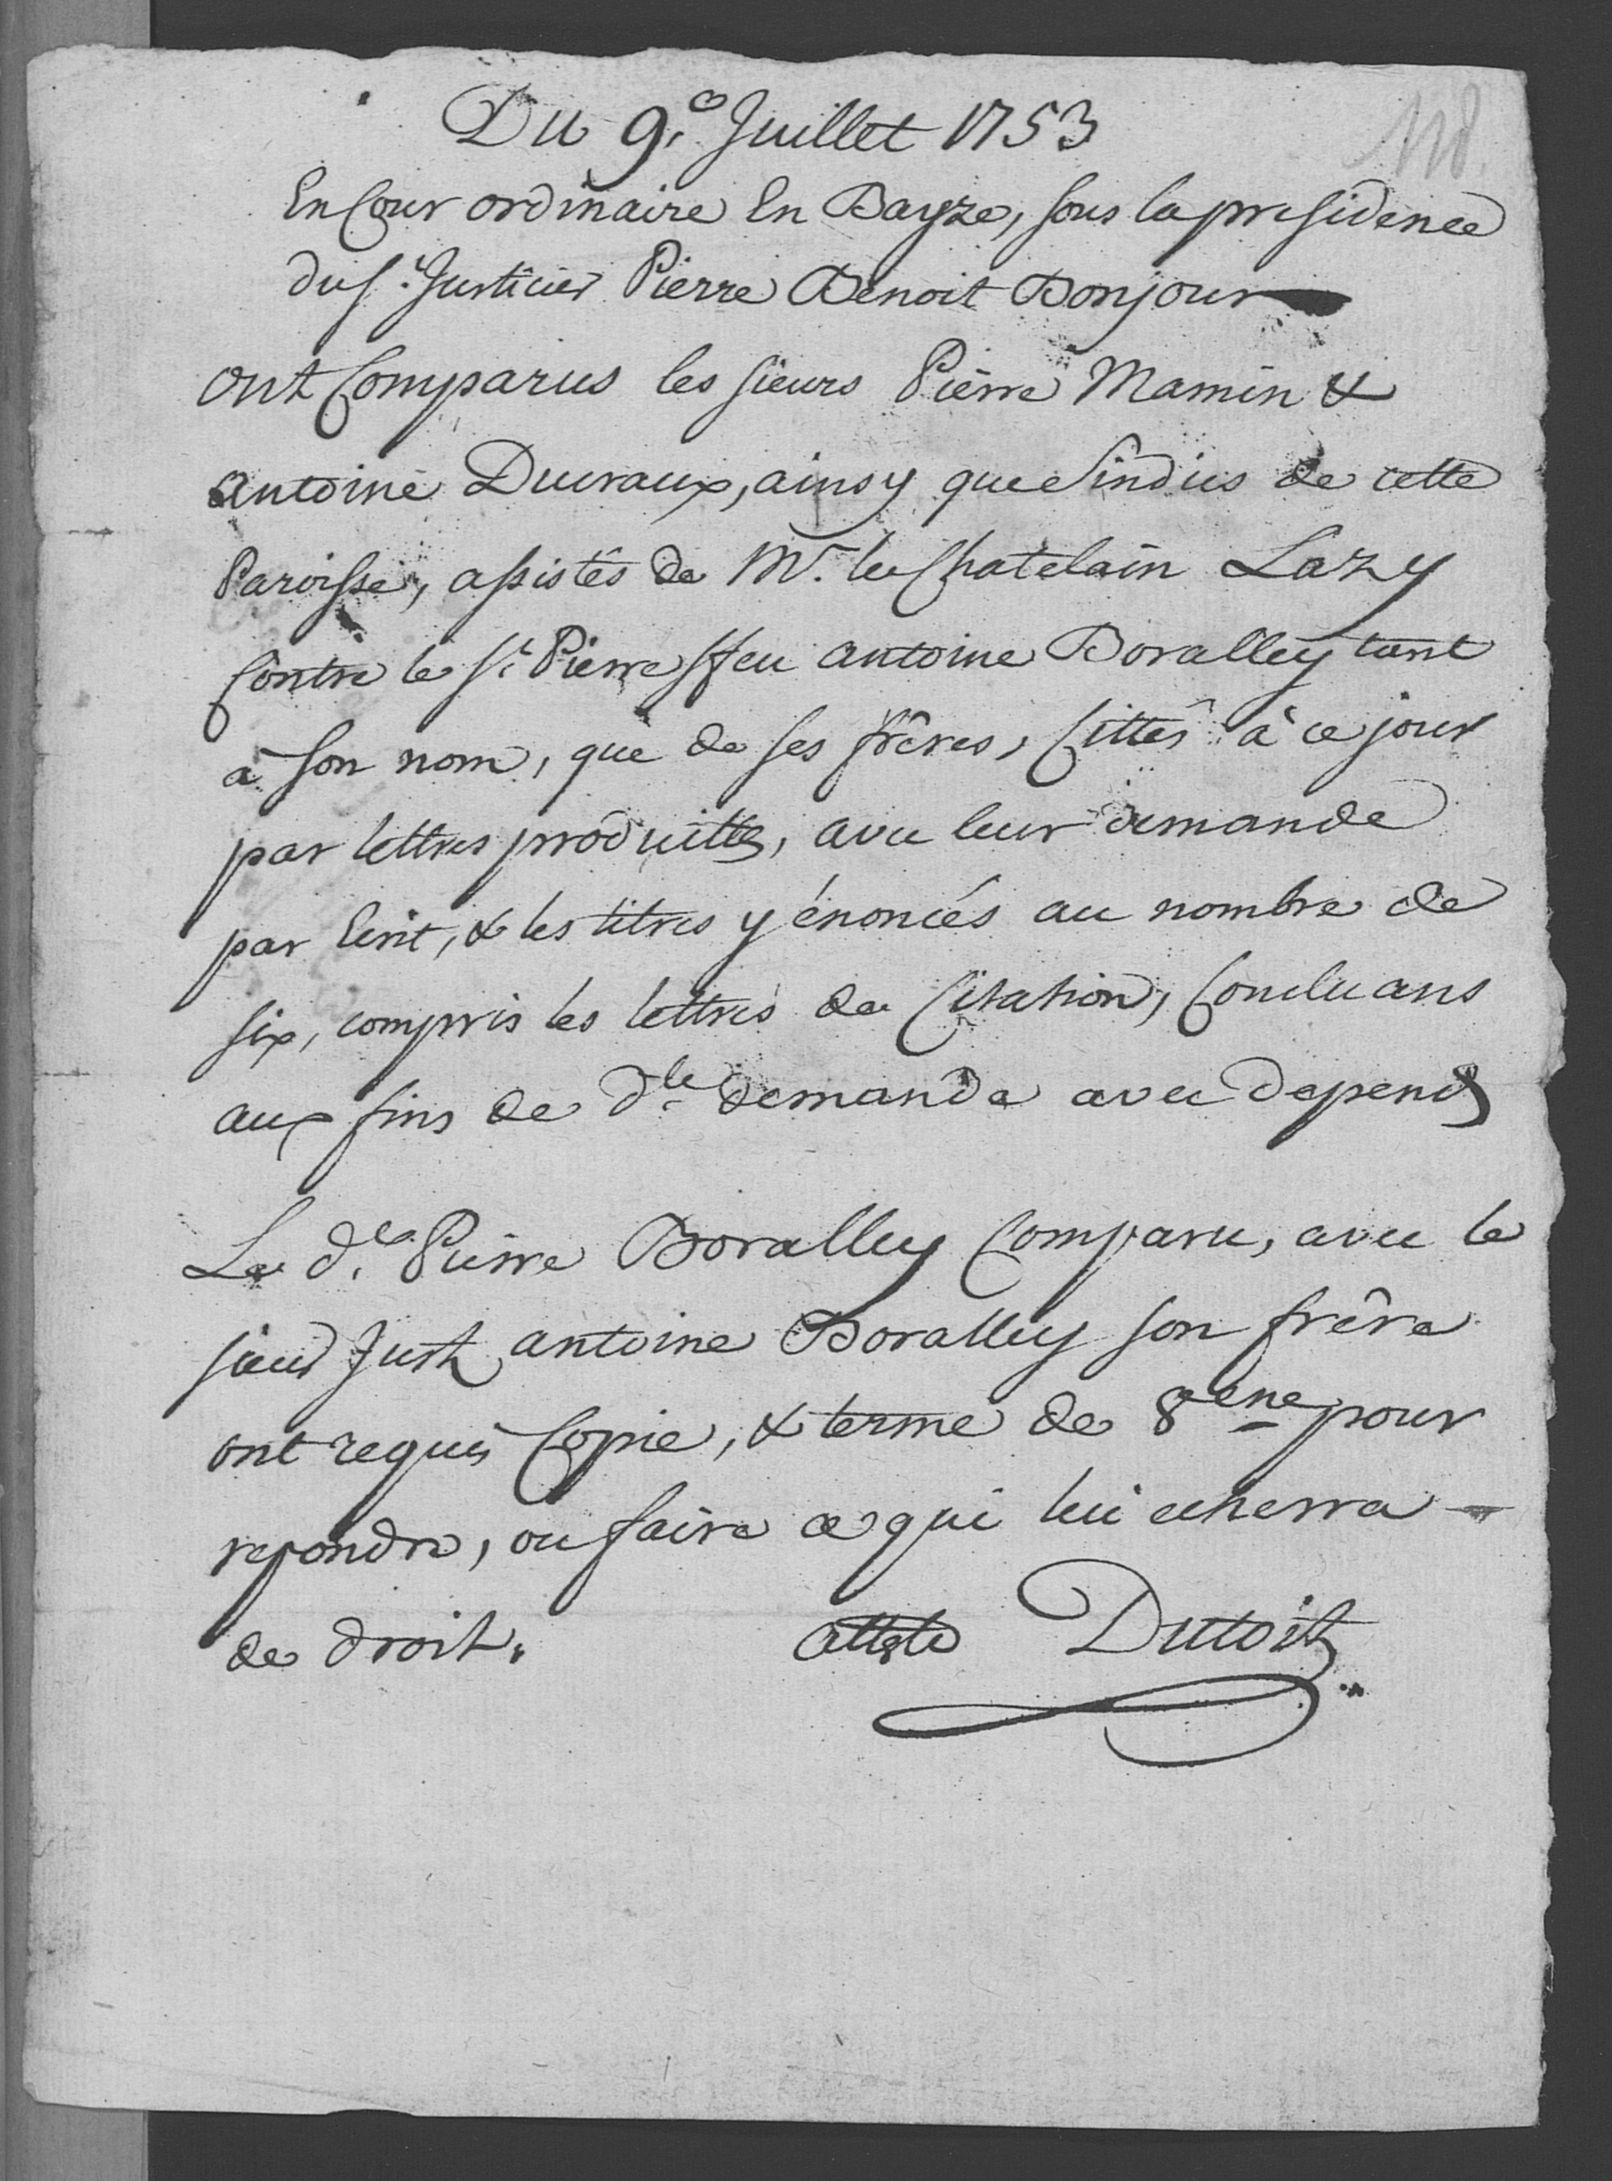 118.
Du 9.e Juillet 1753
En Cour ordinaire En Bayze, sous la presidence
du Sr. Justicier Pierre Benoit Bonjour
ont Comparus les sieurs Pierre Mamin &
Antoine Ducraux, ainsy que Sindics de cette
Paroisse, assistés de Mr. le Chatelain Lazy
Contre le Sr. Pierre ffeu Antoine Boralley tant
à son nom, que de ses frêres, Cittés à ce jour
par lettres produittes, avec leur demande
par Ecrit, & les titres y énoncés au nombre de
six, compris les lettres de Citation, Concluans
aux fins de dte. demande avec depends
Le dt. Pierre Boralley Comparu, avec le
sieur Just. Antoine Boralley son frêre
ont requis Copie, & terme de 8ene pour
repondre, ou faire ce qui lui echerra
de droit.
Atteste Dutoit